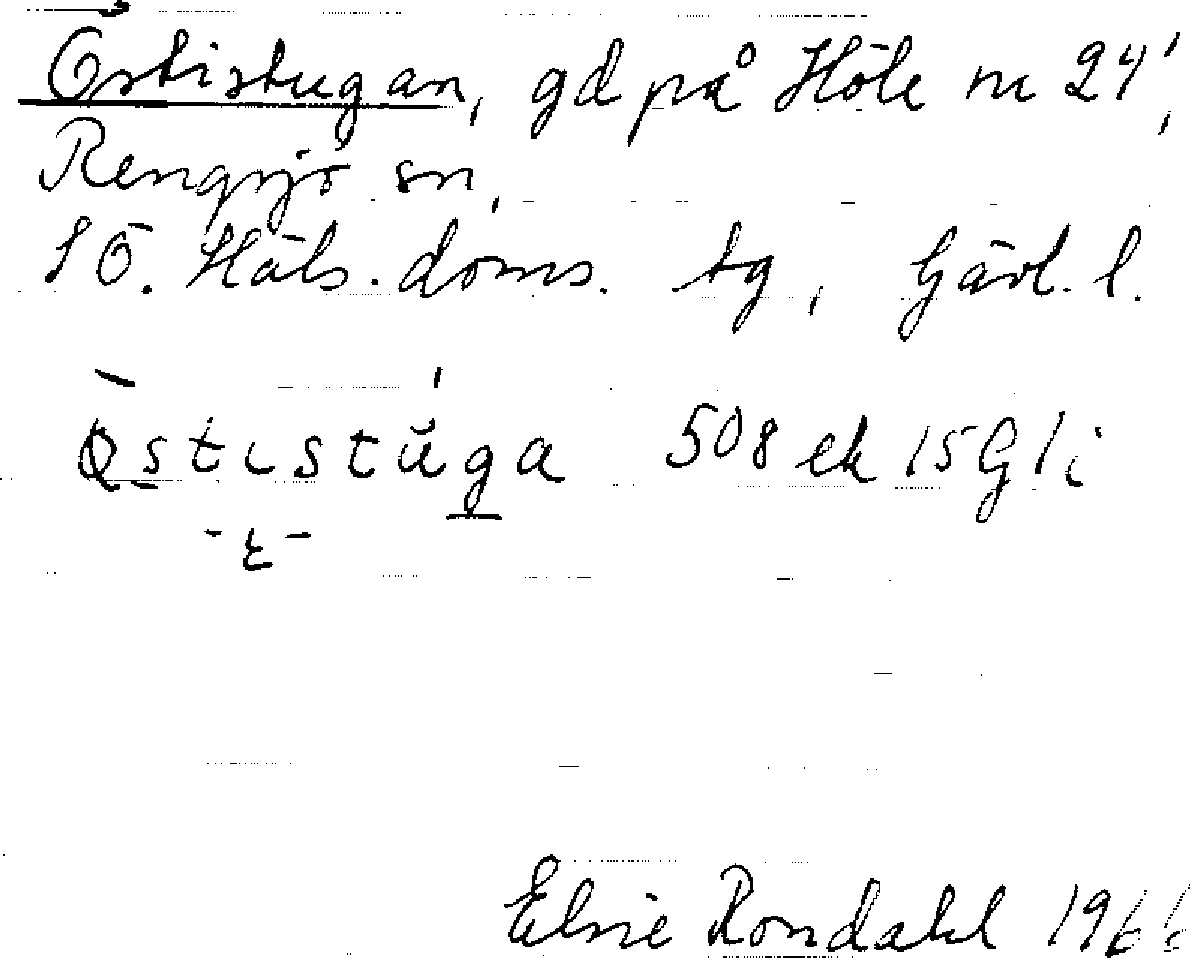 Östistugan, gd på Höle nr 24',
Rengsjö sn,
SÖ. Häls. doms. tg, Gävl. l.
Östistuga 508 ek 15G1i
- ɛ -
Elsie Rondahl 1966